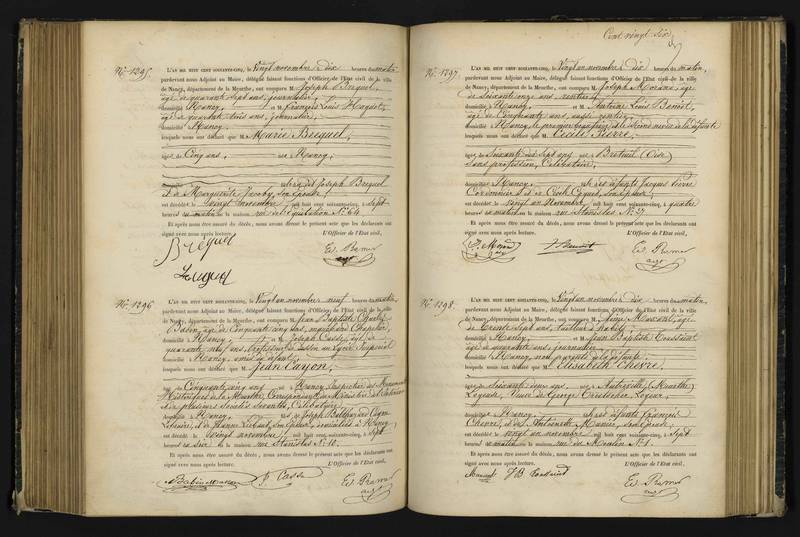 Cent vingt six
N° 1295.
L'AN MIL HUIT CENT SOIXANTE-CINQ, le Vingt novembre à dix heures du matin
pardevant nous Adjoint au Maire, délégué faisant fonctions d'Officier de l'Etat civil de la ville
de Nancy, département de la Meurthe, ont comparu M. Joseph Brequel,
âgé de quarante sept ans, journalier,
domicilié à Nancy, et M. François Louis
âgé de quarante trois ans, journalier,
domicilié à Nancy,
lesquels nous ont déclaré que M Marie Brequel,
âgée de Cinq ans, née à Nancy,
fille de dit Joseph Brequel
et de Marguerite Jacoby, son épouse,
est décédée le vingt novembre mil huit cent soixante-cinq, à sept
heures du matin en la maison rue de l'Equitation N° 64
Et après nous être assuré du décès, nous avons dressé le présent acte que les déclarants ont
signé avec nous après lecture. L'Officier de l'Etat civil,
Bréquel
N° 1296
L'AN MIL HUIT CENT SOIXANTE-CINQ, le Vingt un novembre à neuf heures du matin,
pardevant nous Adjoint au Maire, délégué faisant fonctions d'Officier de l'Etat civil de la ville
de Nancy, département de la Meurthe, ont comparu M. Jean Baptiste Charles
Babin, âgé de Cinquante cinq ans, marchand Chapelier,
domicilié à Nancy, et M. Joseph Casse, âgé de
quarante neuf ans, Professeur de dessin au Lycée Impérial
domicilié à Nancy, amis du défunt,
lesquels nous ont déclaré que M. Jean Cayon,
âgé de Cinquante cinq ans né à Nancy, Inspecteur des Monuments
Historiques de la Meurthe, Correspondant du Ministère de l'Intérieur
et de plusieurs Sociétés Savantes, Célibataire,
domicilié à Nancy, fils de Joseph Balthazard Cayon
et de Jeanne son épouse, domiciliés à Nancy,
est décédé le vingt novembre mil huit cent soixante-cinq, à sept
heures du soir en la maison rue Stanislas N° 10.
Et après nous être assuré du décès, nous avons dressé le présent acte que les déclarants ont
signé avec nous après lecture. L'Officier de l'Etat civil,
J. Casse
N° 1297.
L'AN MIL HUIT CENT SOIXANTE-CINQ, le Vingt un novembre à dix heures du matin,
pardevant nous Adjoint au Maire, délégué faisant fonctions d'Officier de l'Etat civil de la ville
de Nancy, département de la Meurthe, ont comparu M. Joseph âgé
de Soixante onze ans, rentier,
domicilié à Nancy, et M. Antoine Louis Benoit,
âgé de Cinquante ans, aussi rentier,
domicilié à Nancy, le premier beau frère et le second neveu de la défunte
lesquels nous ont déclaré que M Cécile Pierre,
âgée de Soixante dix sept ans née à Breteuil (Oise)
sans profession, Célibataire,
domiciliée à Nancy, fille des défunts Jacques Pierre
est décédée le vingt un Novembre mil huit cent soixante-cinq, à quatre
heures du matin en la maison rue Stanislas N° 27.
Et après nous être assuré du décès, nous avons dressé le présent acte que les déclarants ont
signé avec nous après lecture. L'Officier de l'Etat civil,
N° 1298.
L'AN MIL HUIT CENT SOIXANTE-CINQ, le Vingt un novembre à dix heures du matin,
pardevant nous Adjoint au Maire, délégué faisant fonctions d'Officier de l'Etat civil de la ville
de Nancy, département de la Meurthe, ont comparu M. âgé
de Trente sept ans, Tailleur d'habits,
domicilié à Nancy, et M. Jean Baptiste Toussaint
âgé de quarante ans, journalier
domicilié à Nancy, non parents de la défunte,
lesquels nous ont déclaré que M Elisabeth Chevre,
âgée de Soixante ans, née à (Meurthe)
Veuve de George Christophe
domiciliée à Nancy, fille des défunts François
Chevre, et de Antoinette son épouse,
est décédée le vingt un novembre mil huit cent soixante-cinq, à sept
heures du matin en la maison rue N° 1.
Et après nous être assuré du décès, nous avons dressé le présent acte que les déclarants ont
signé avec nous après lecture. L'Officier de l'Etat civil,
J B Toussaint